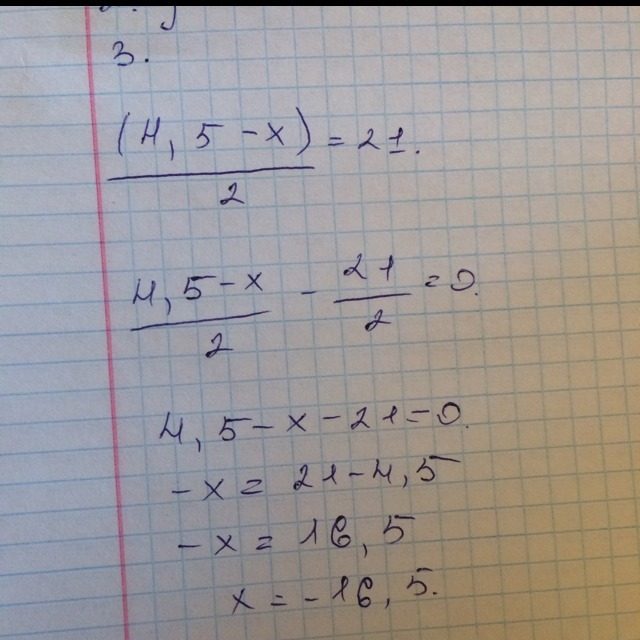 3.
(4,5-x)/2 = 21.
4,5-x/2 - 21/2 = 0.
4,5-x-21=0.
-x = 21-4,5
-x = 16,5
x = -16,5.